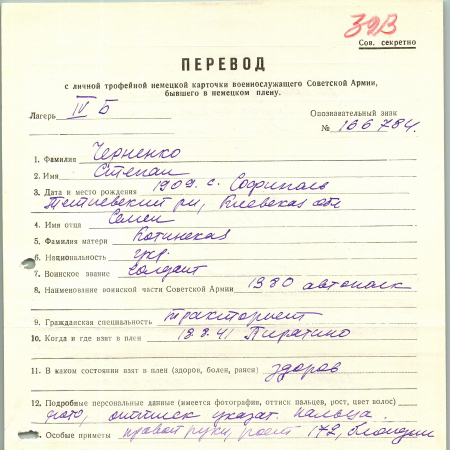 39В
Сов. секретно
ПЕРЕВОД
с личной трофейной немецкой карточки военнослужащего Советской Армии,
бывшего в немецком плену.
Лагерь IV Б Опознавательный знак
№ 166784.
1. Фамилия Черненко
2. Имя Степан
3. Дата и место рождения 1909. с. Софиполь
Тетиевский рн, Киевская обл
4. Имя отца Семен
5. Фамилия матери Котинская
6. Национальность укр.
7. Воинское звание солдат
8. Наименование воинской части Советской Армии 1980 автополк
9. Гражданская специальность тракторист
10. Когда и где взят в плен 18.8.41 Пирятино
11. В каком состоянии взят в плен (здоров, болен, ранен) здоров
12. Подробные персональные данные (имеется фотография, оттиск пальцев, рост, цвет волос)
фото, оттиск указат. пальца
Особые приметы правой руки, рост 172, блондин